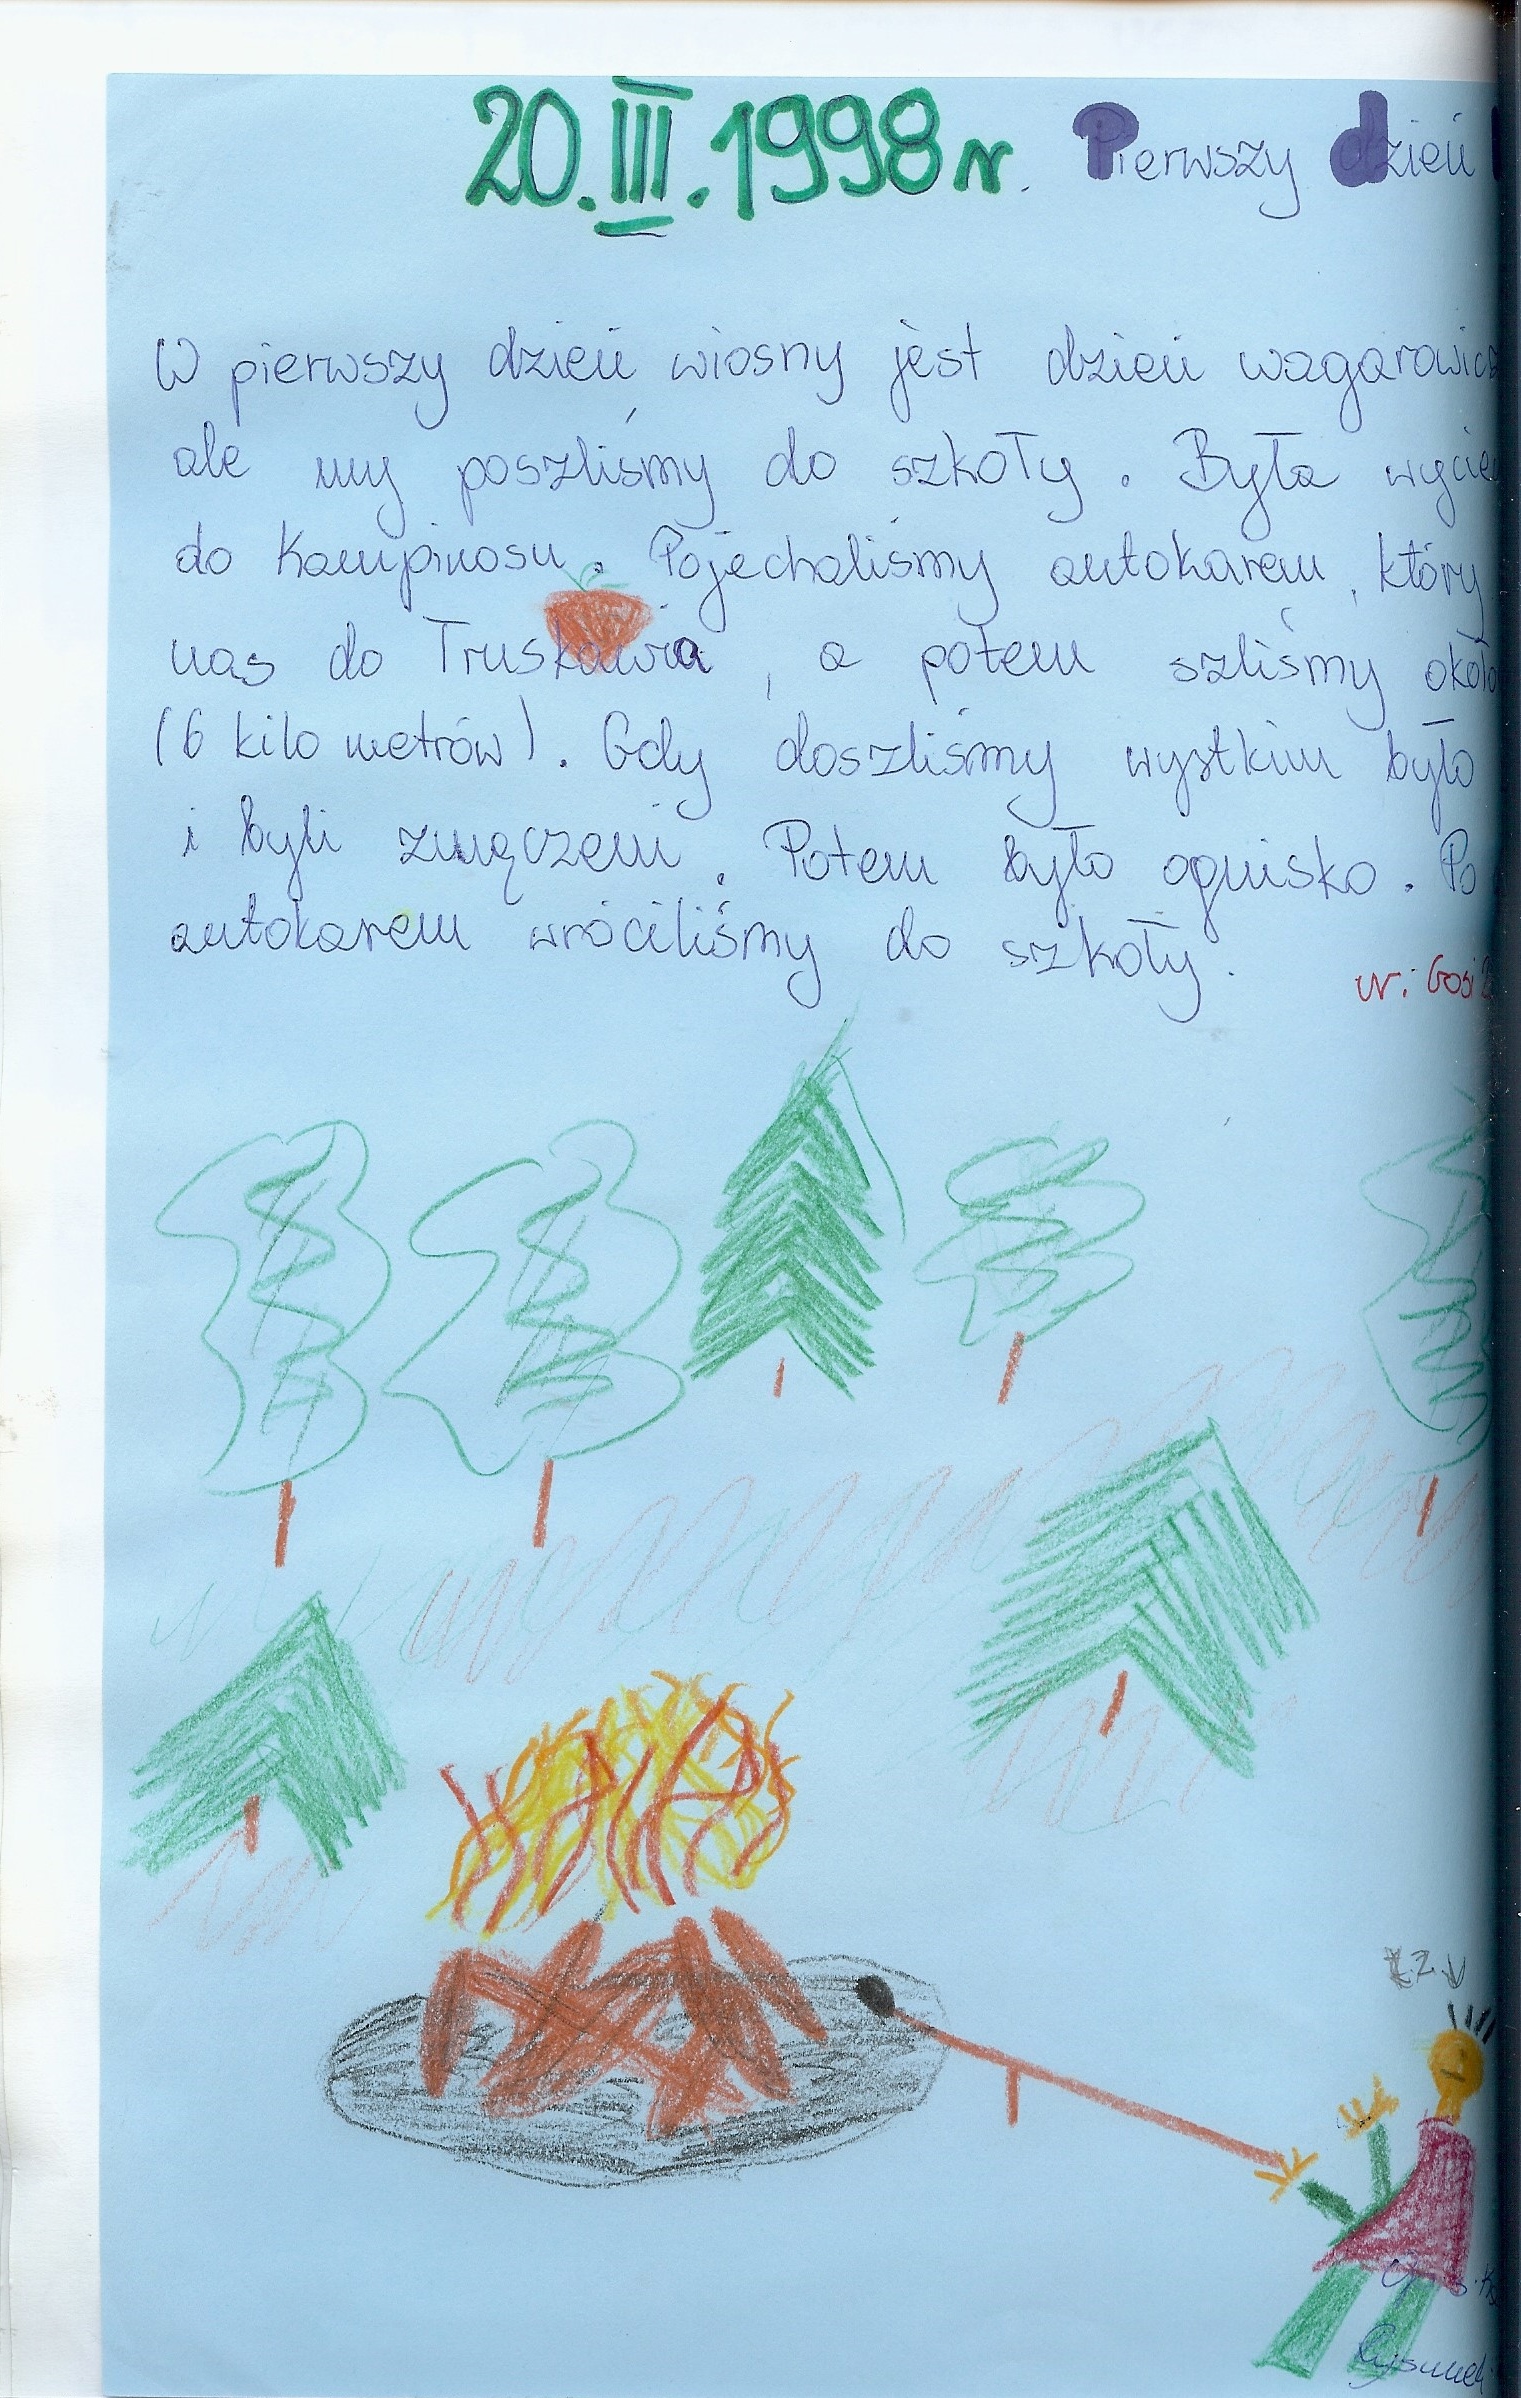 20.III.1998 r. Pierwszy dzień
W pierwszy dzień wiosny jest dzień
ale my poszliśmy do szkoły. Była
do Kampinosu. Pojechaliśmy autokarem, który
nas do Truskawia, a potem szliśmy około
(6 kilo metrów). Gdy doszliśmy wystkim było
i byli zmęczeni. Potem było ognisko. Po
autokarem wróciliśmy do szkoły.
Rysunek